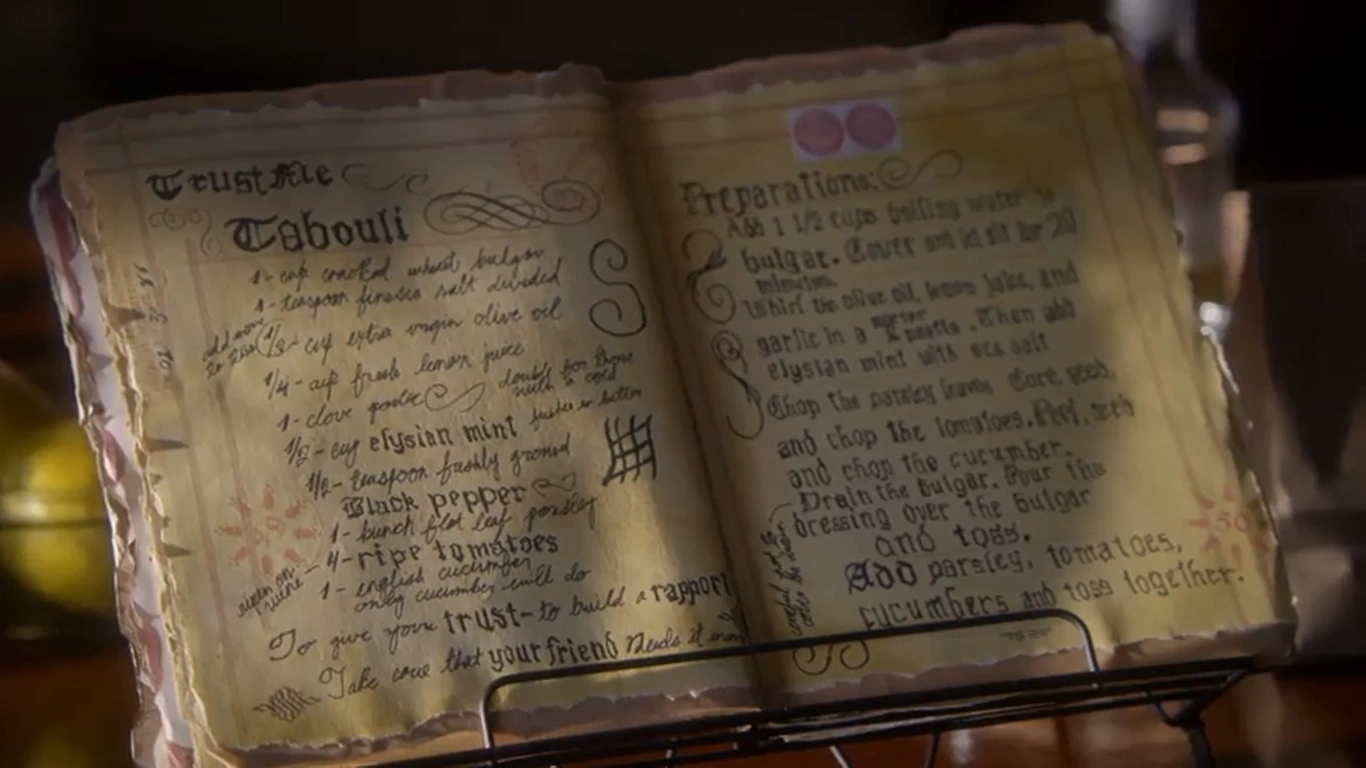 Trust Me
Tabouli
1 - cup cracked wheat bulgur
1 - teaspoon fine sea salt divided
1/3 - cup extra virgin olive oil
1/4 - cup fresh lemon juice
1 - clove garlic
double for those
with a cold
1/2 - cup elysian mint
1/2 - teaspoon freshly ground
Black pepper
1 - bunch flat leaf parsley
4 - ripe tomatoes
1 - english cucumber
only cucumber will do
To give your trust - to build a rapport
Take care that your friend needs it more
Preparations:
Add 1 1/2 cups boiling water to
bulgar. Cover and let sit for 20
minutes.
Whirl the olive oil, lemon juice, and
garlic in a mortar
&. Then add
elysian mint with sea salt
Chop the parsley leaves. Core, seed,
and chop the tomatoes. Peel, seed
and chop the cucumber.
Drain the bulgar. Pour the
dressing over the bulgar
and toss.
Add parsley, tomatoes,
cucumbers and toss together.